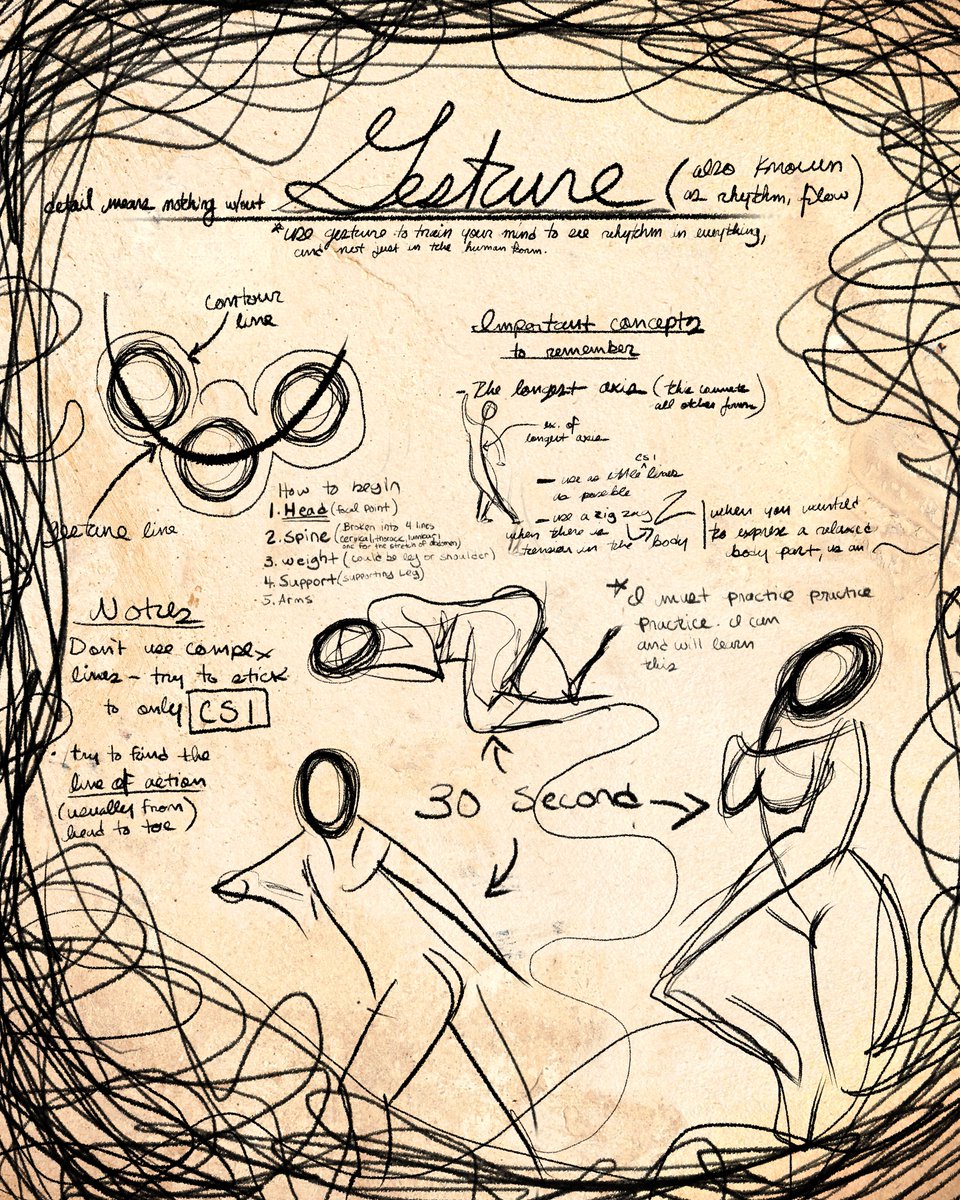 Gesture (also known
as rhythm, flow)
detail means nothing w/out
*use gesture to train your mind to see rhythm in everything,
and not just in the human form.
contour
line
gesture line
Important concepts
to remember
- The longest axis (this connects
all other forms)
ex. of
longest axis
CSI
- use as little ^ lines
as possible
- use a zig zag
when there is
tension in the body
when you wanted
to express a relaxed
body part, use an
How to begin
1. Head (focal point)
2. Spine (Broken into 4 lines
cervical, thoracic, lumbar,
one for the stretch of abdomen)
3. weight (could be leg or shoulder)
4. Support (supporting leg)
5. Arms
*I must practice practice
practice. I can
and will learn
this
Notes
Don't use complex
lines - try to stick
to only CSI
· try to find the
line of action
(usually from
head to toe)
30 Second